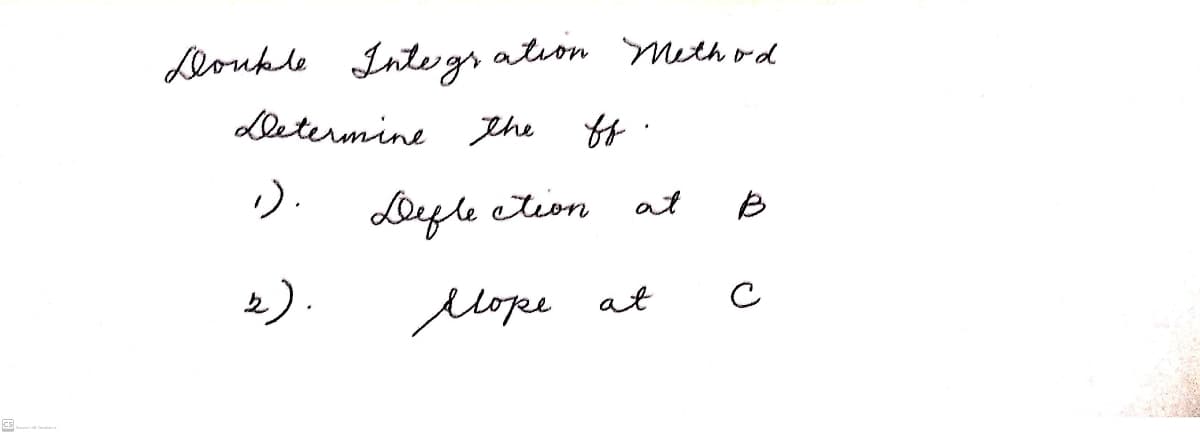 Double Integration Method
Determine the ff.
1). Deflection at B
2). Slope at C
CS